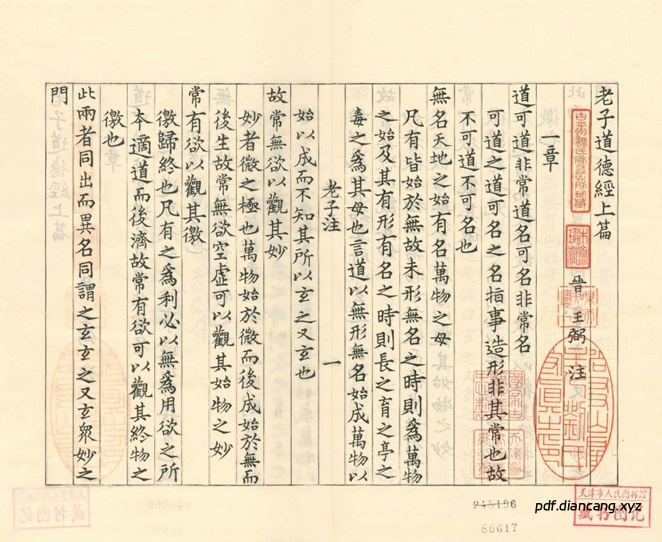 老子道德經上篇
晉 王弼 注
一章
道可道非常道名可名非常名
可道之道可名之名指事造形非其常也故
不可道不可名也
無名天地之始有名萬物之母
凡有皆始於無故未形無名之時則爲萬物
之始及其有形有名之時則長之育之亭之
毒之爲其母也言道以無形無名始成萬物以
老子注 一
始以成而不知其所以玄之又玄也
故常無欲以觀其妙
妙者微之極也萬物始於微而後成始於無而
後生故常無欲空虛可以觀其始物之妙
常有欲以觀其徼
徼歸終也凡有之爲利必以無爲用欲之所
本適道而後濟故常有欲可以觀其終物之
徼也
此兩者同出而異名同謂之玄玄之又玄衆妙之
門
天津市人民图书馆
藏书图记
86617
pdf.diancang.xyz